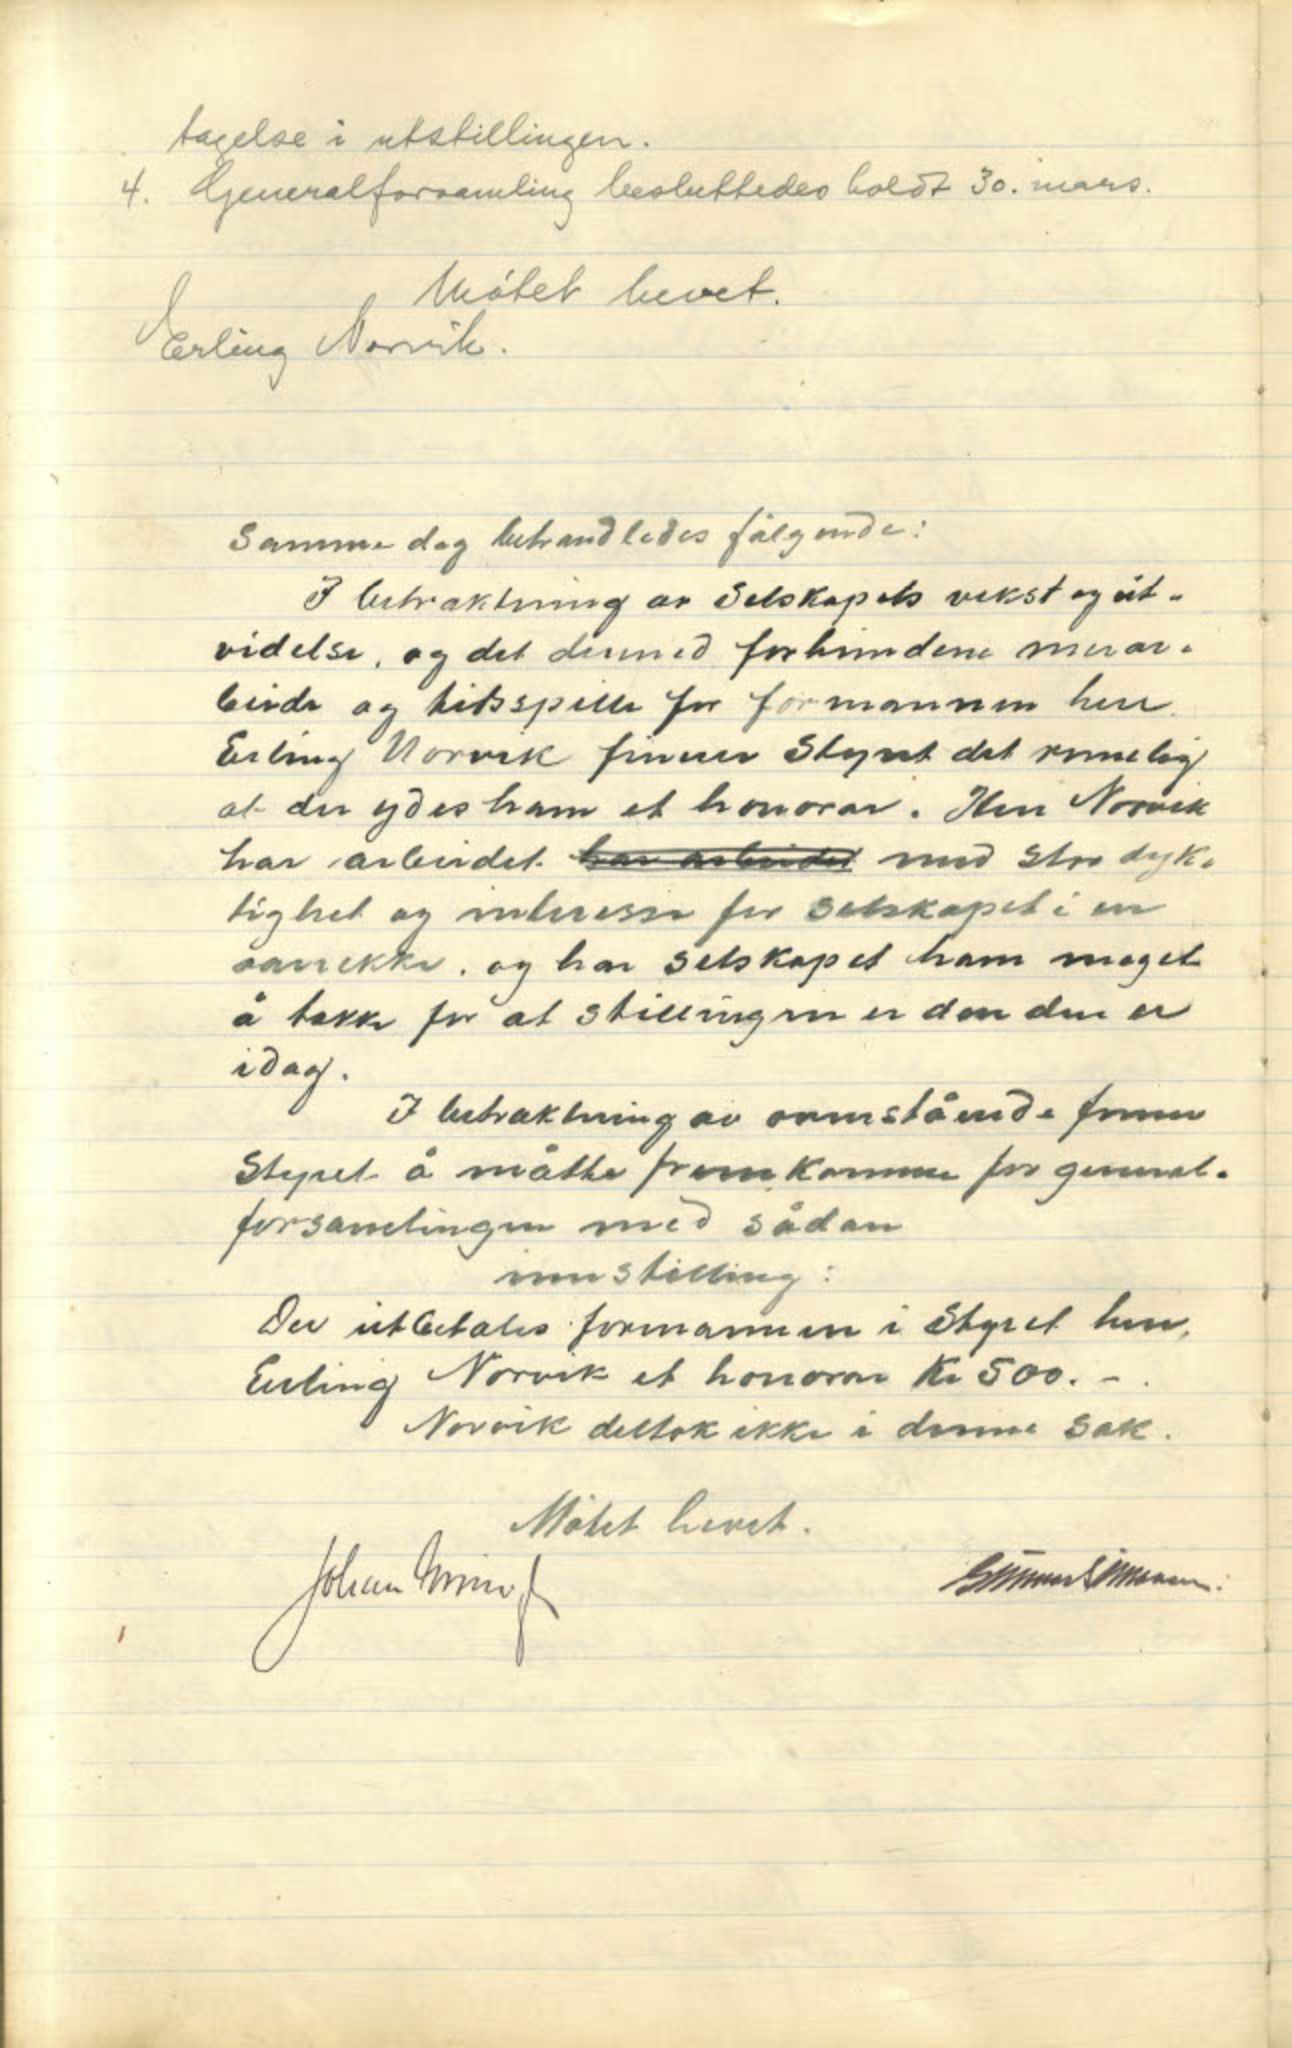 tagelse i utstillingen.
4. Generalforsamling besluttedes holdt 30. mars.
Møtet hevet.
Erling Norvik.
Samme dag behandledes følgende:
I betraktning av Selskapets vekst og ut-
videlse, og det dermed forbundene merar-
beide og tidsspille for formannen herr
Erling Norvik finner Styret det rimelig
at der ydes ham et honorar. Herr Norvik
har arbeidet har arbeidet med stor dyk-
tighet og interesse for Selskapet i en
årrekke, og har Selskapet ham meget
å takke for at stillingen er den den er
idag.
I betraktning av ovenstående finner
Styret å måtte fremkomme for general-
forsamlingen med sådan
innstilling:
Der utbetales formannen i Styret herr,
Erling Norvik et honorar Kr 500.-.
Norvik deltok ikke i denne sak.
Møtet hevet.
Johan